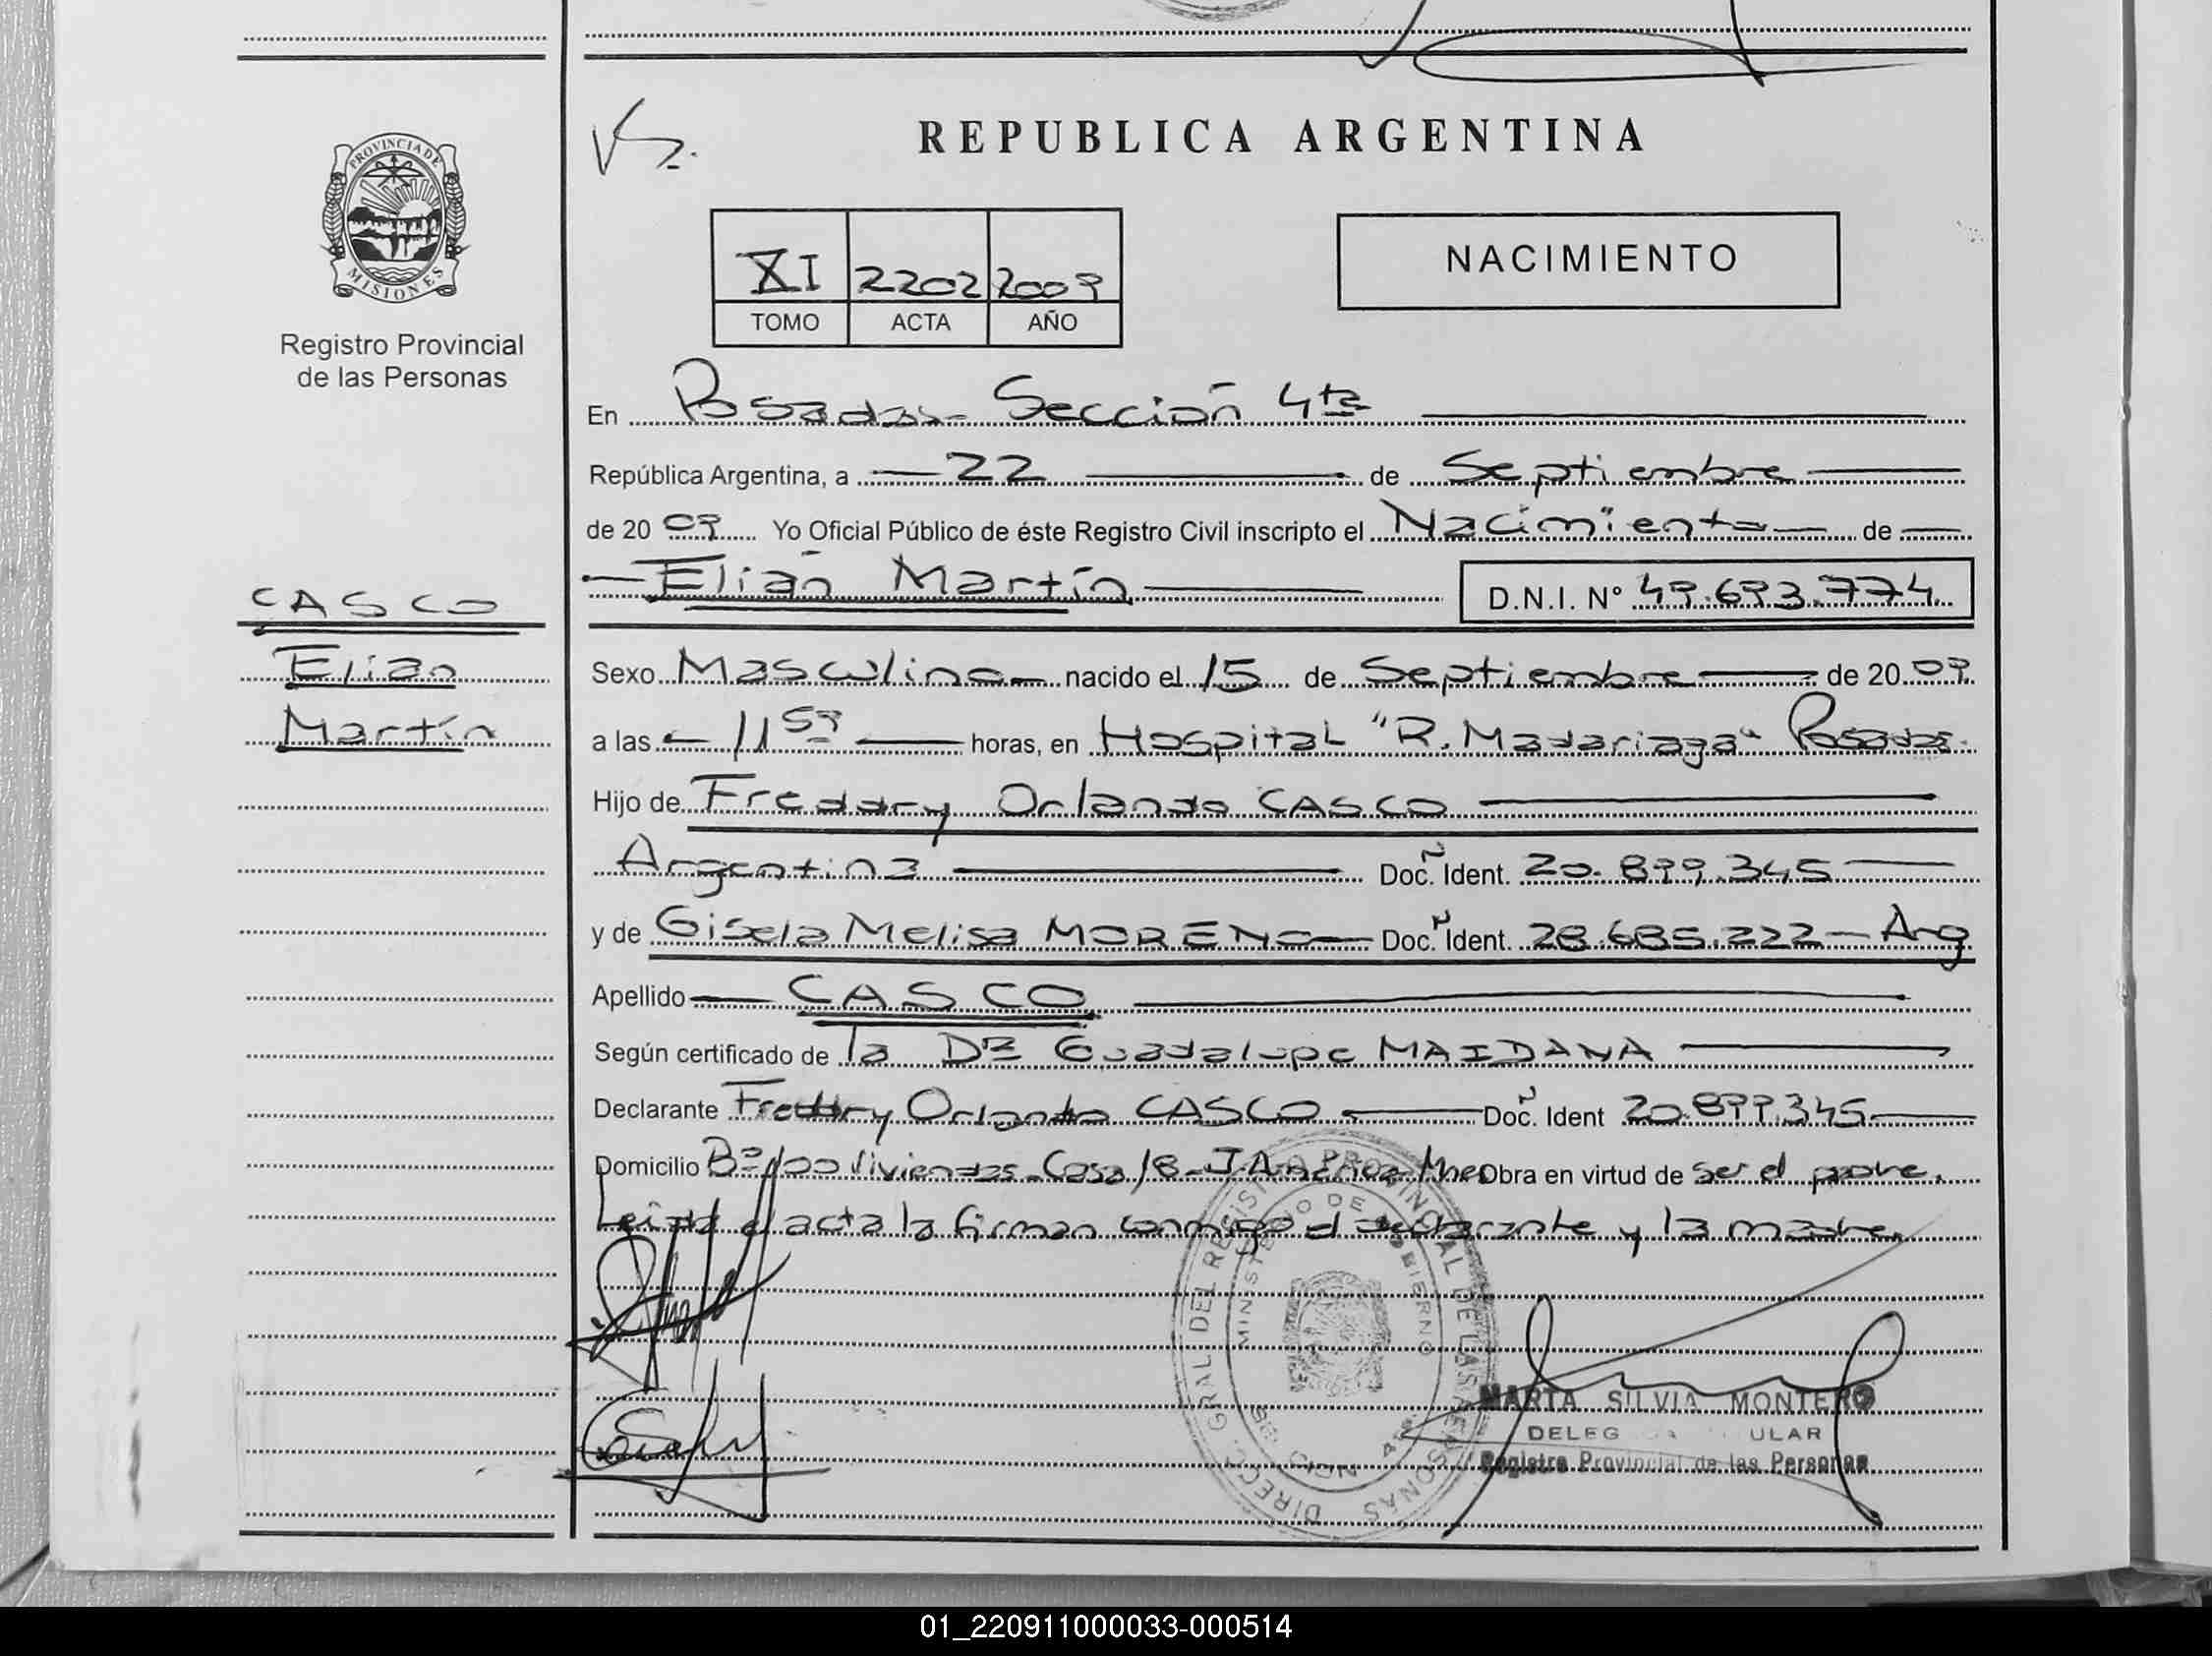 REPUBLICA ARGENTINA
PROVINCIA DE MISIONES
Registro Provincial
de las Personas
XI 2202 2009
TOMO ACTA AÑO
NACIMIENTO
En Posadas - Sección 4ta
República Argentina, a 22 de Septiembre
de 2009 Yo Oficial Público de éste Registro Civil inscripto el Nacimiento de
Elián Martín D.N.I. N° 49.693.774
CASCO
Elián
Martín
Sexo Masculino nacido el 15 de Septiembre de 2009
a las 11 59 horas, en Hospital "R. Madariaga" Posadas.
Hijo de Freddry Orlando CASCO
Argentina Doc. Ident. 20.899.345
y de Gisela Melisa MORENO Doc. Ident. 28.685.222 - Arg
Apellido CASCO
Según certificado de la Dra Guadalupe MAIDANA
Declarante Freddry Orlando CASCO Doc. Ident 20.899.345
Domicilio Bº 100 Viviendas - Casa 18 - Obra en virtud de ser el padre.
Leída el acta la firman conmigo el declarante y la madre.
DIRECC. GRAL. DEL REGISTRO PROVINCIAL DE LAS PERSONAS
MINISTERIO DE GOBIERNO
MARTA SILVIA MONTERO
Registro Provincial de las Personas
01_220911000033-000514